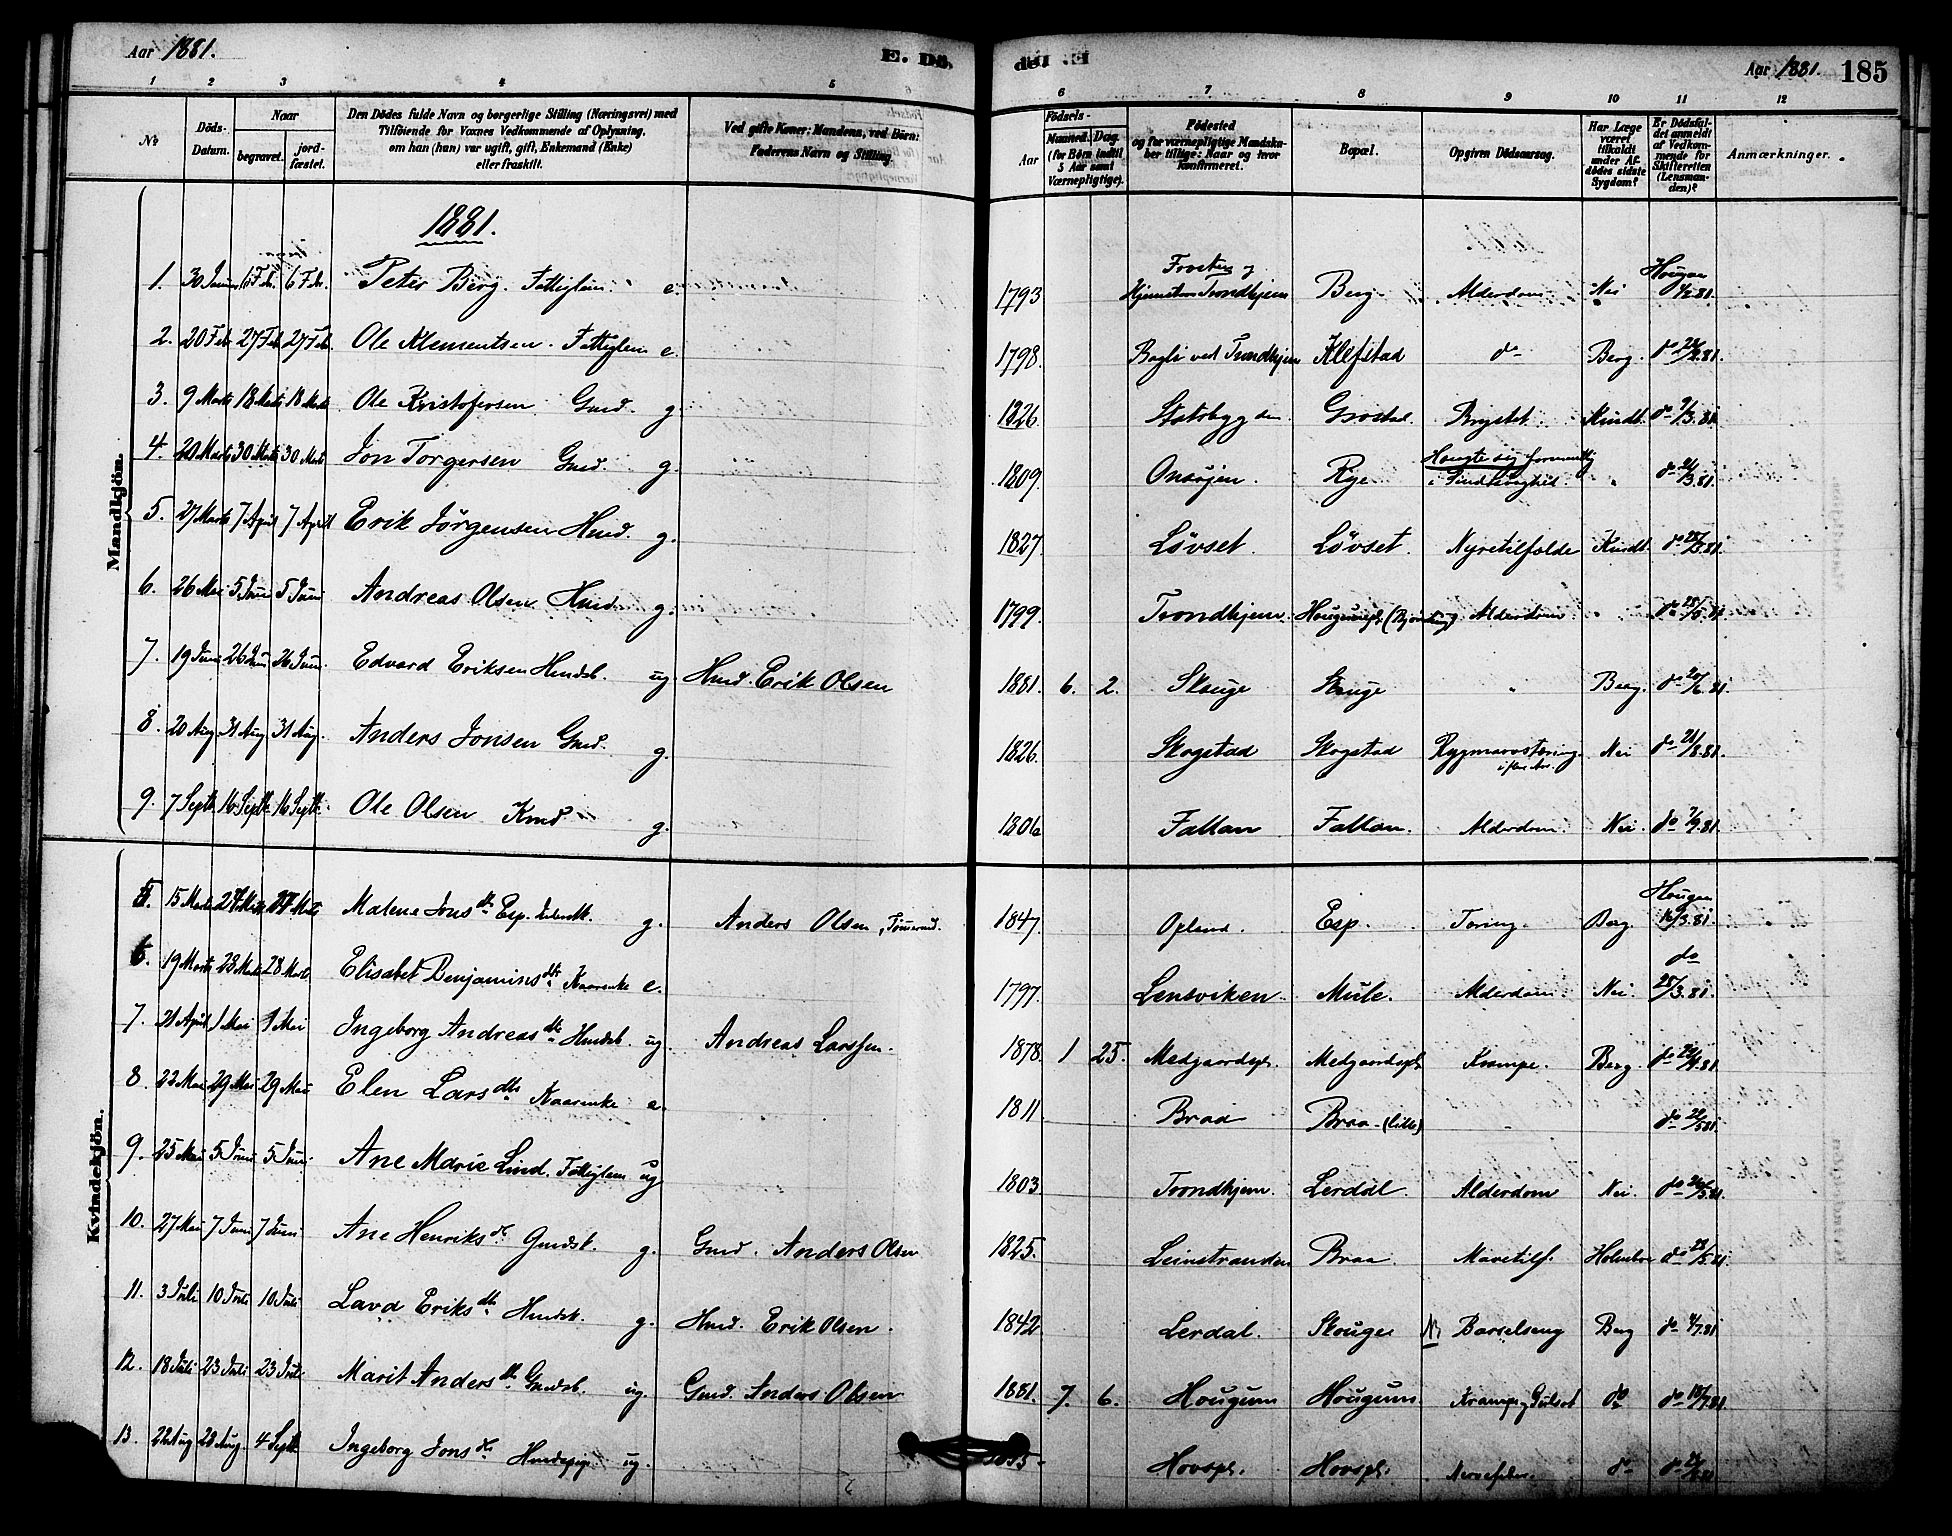 Aar 1881.
E. Dö.
E. Dö
Aar 1881. 185
1 2 3 4 5 6
6 7 8 9 10 11 12
No
Döds-Datum.
Naar
begravet.
jordfæstet.
Den Dödes fulde Navn og borgerlige Stilling (Næringsvei) med
Tilföiende for Voxnes Vedkommende af Oplysning,
om han (hun) var ugift, gift, Enkemand (Enke)
eller fraskilt.
Ved gifte Koner: Mandens, ved Börn:
Faderens Navn og Stilling.
Födsels-
Aar
Maaned.
Dag.
(for Börn indtil
5 Aar samt
Værnepligtige).
Födested
og for værnepligtige Mandskaber tillige: Naar og hvor
konfirmeret.
Bopæl.
Opgiven Dödsaarsag.
Har Læge
været
tilkaldt
under Afdödes sidste
Sygdom?
Er Dödsfaldet anmeldt
af Vedkommende for
Skifteretten
(Lensmanden)?
Anmærkninger.
1881.
Mandkjön.
1. 30 Januar 6 Feb. 6 Feb. Peter Berg. Fattiglem e. 1793 Trondhjem Berg. Alderdom Nei Hougan
2. 20 Feb 27 Feb 27 Feb. Ole Klementsen. Fattiglem e. 1798. Bagli ved Trondhjem Klefstad do Berg. do
3. 9 Marts 18 Marts 18 Marts Ole Kristofersen Gmd. g. 1826. Statsbygden Grostad Brystet. Kindt. do 9/3.81.
4. 20 Marts 30 Marts 30 Marts Jon Torgersen Gmd. g. 1809. Onsøjen. Rye Hængte sig i Sindsvaghed do 21/3.81.
5. 27 Marts 7 April 7 April Erik Jörgensen Hmd. g. 1827. Lövset. Lövset. Nyretilfælde Kindt. do 28/3.81.
6. 26 Mai 5 Juni 5 Juni Andreas Olsen Hmd. g. 1799. Trondhjem. Alderdom do 28/5.81.
7. 19 Juni 26 Juni 26 Juni. Edvard Eriksen Hmdsb. ug. Hmd. Erik Olsen 1881. 6. 2. Skouge Skouge " Berg. do 20/6.81.
8. 20 Aug 31 Aug 31 Aug. Anders Jonsen Gmd. g. 1826. Skogstad Skogstad Rygmarvstæring Nei do 21/8.81.
9. 7 Septb. 16 Septb. 16 Septb. Ole Olsen Kmd g. 1806 Faltan Faltan. Alderdom. Nei. do 7/9.81.
Kvindekjön.
5. 15 Marts Malene Jonsdtr. Esp. g. Anders Olsen, 1847. Opland. Esp. Tæring. Berg. Hougen 16/3.81.
6. 19 Marts 28 Marts 28 Marts Elisabet Benjaminsdtr. Kaarenke e. 1797. Lensviken. Mule. Alderdom. Nei. do 28/3.81.
7. 21 April 1 Mai 1 Mai Ingeborg Andreasdtr. Hmdsb. ug. Andreas Larssen. 1878. 1 25. Medgaardspl. Medgaardspl. Krampe. Berg. do 22/4.81.
8. 22 Mai 29 Mai 29 Mai Elen Larsdtr. Kaarenke e. 1811 Braa Braa (lille) do
9. 25 Mai 5 Juni 5 Juni Ane Marie Lind. Fattiglem ug 1803. Trondhjem. Lerdal. Alderdom Nei. do 26/5.81.
10. 27 Mai 7 Juni 7 Juni Ane Henriksdtr. Gmdsk. g. Gmd. Anders Olsen 1825. Leinstranden Braa. Mavetilf. Holmboe do 28/5.81.
11. 3 Juli 10 Juli 10 Juli Hmdsk. g. Hmd. Erik Olsen. 1842. Lerdal. Skouge Barselseng Berg do 4/7.81
12. 18 Juli 23 Juli 23 Juli Marit Andersdtr. Gmdsb. ug. Gmd. Anders Olsen 1881. 7. 6. Hougum Hougum Krampe, Gulsot do do 18/7.81.
13. 22 Aug 28 Aug. 4 Septb. Ingeborg Jonsdtr. Hmdspige ug. Hovspl. Hovspl. do do